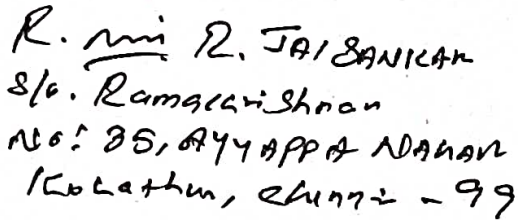 R. R. JAISANKAR
S/o. Ramakrishnan
No: 35, AYYAPPA NAGAR
Kolathur, Chennai - 99